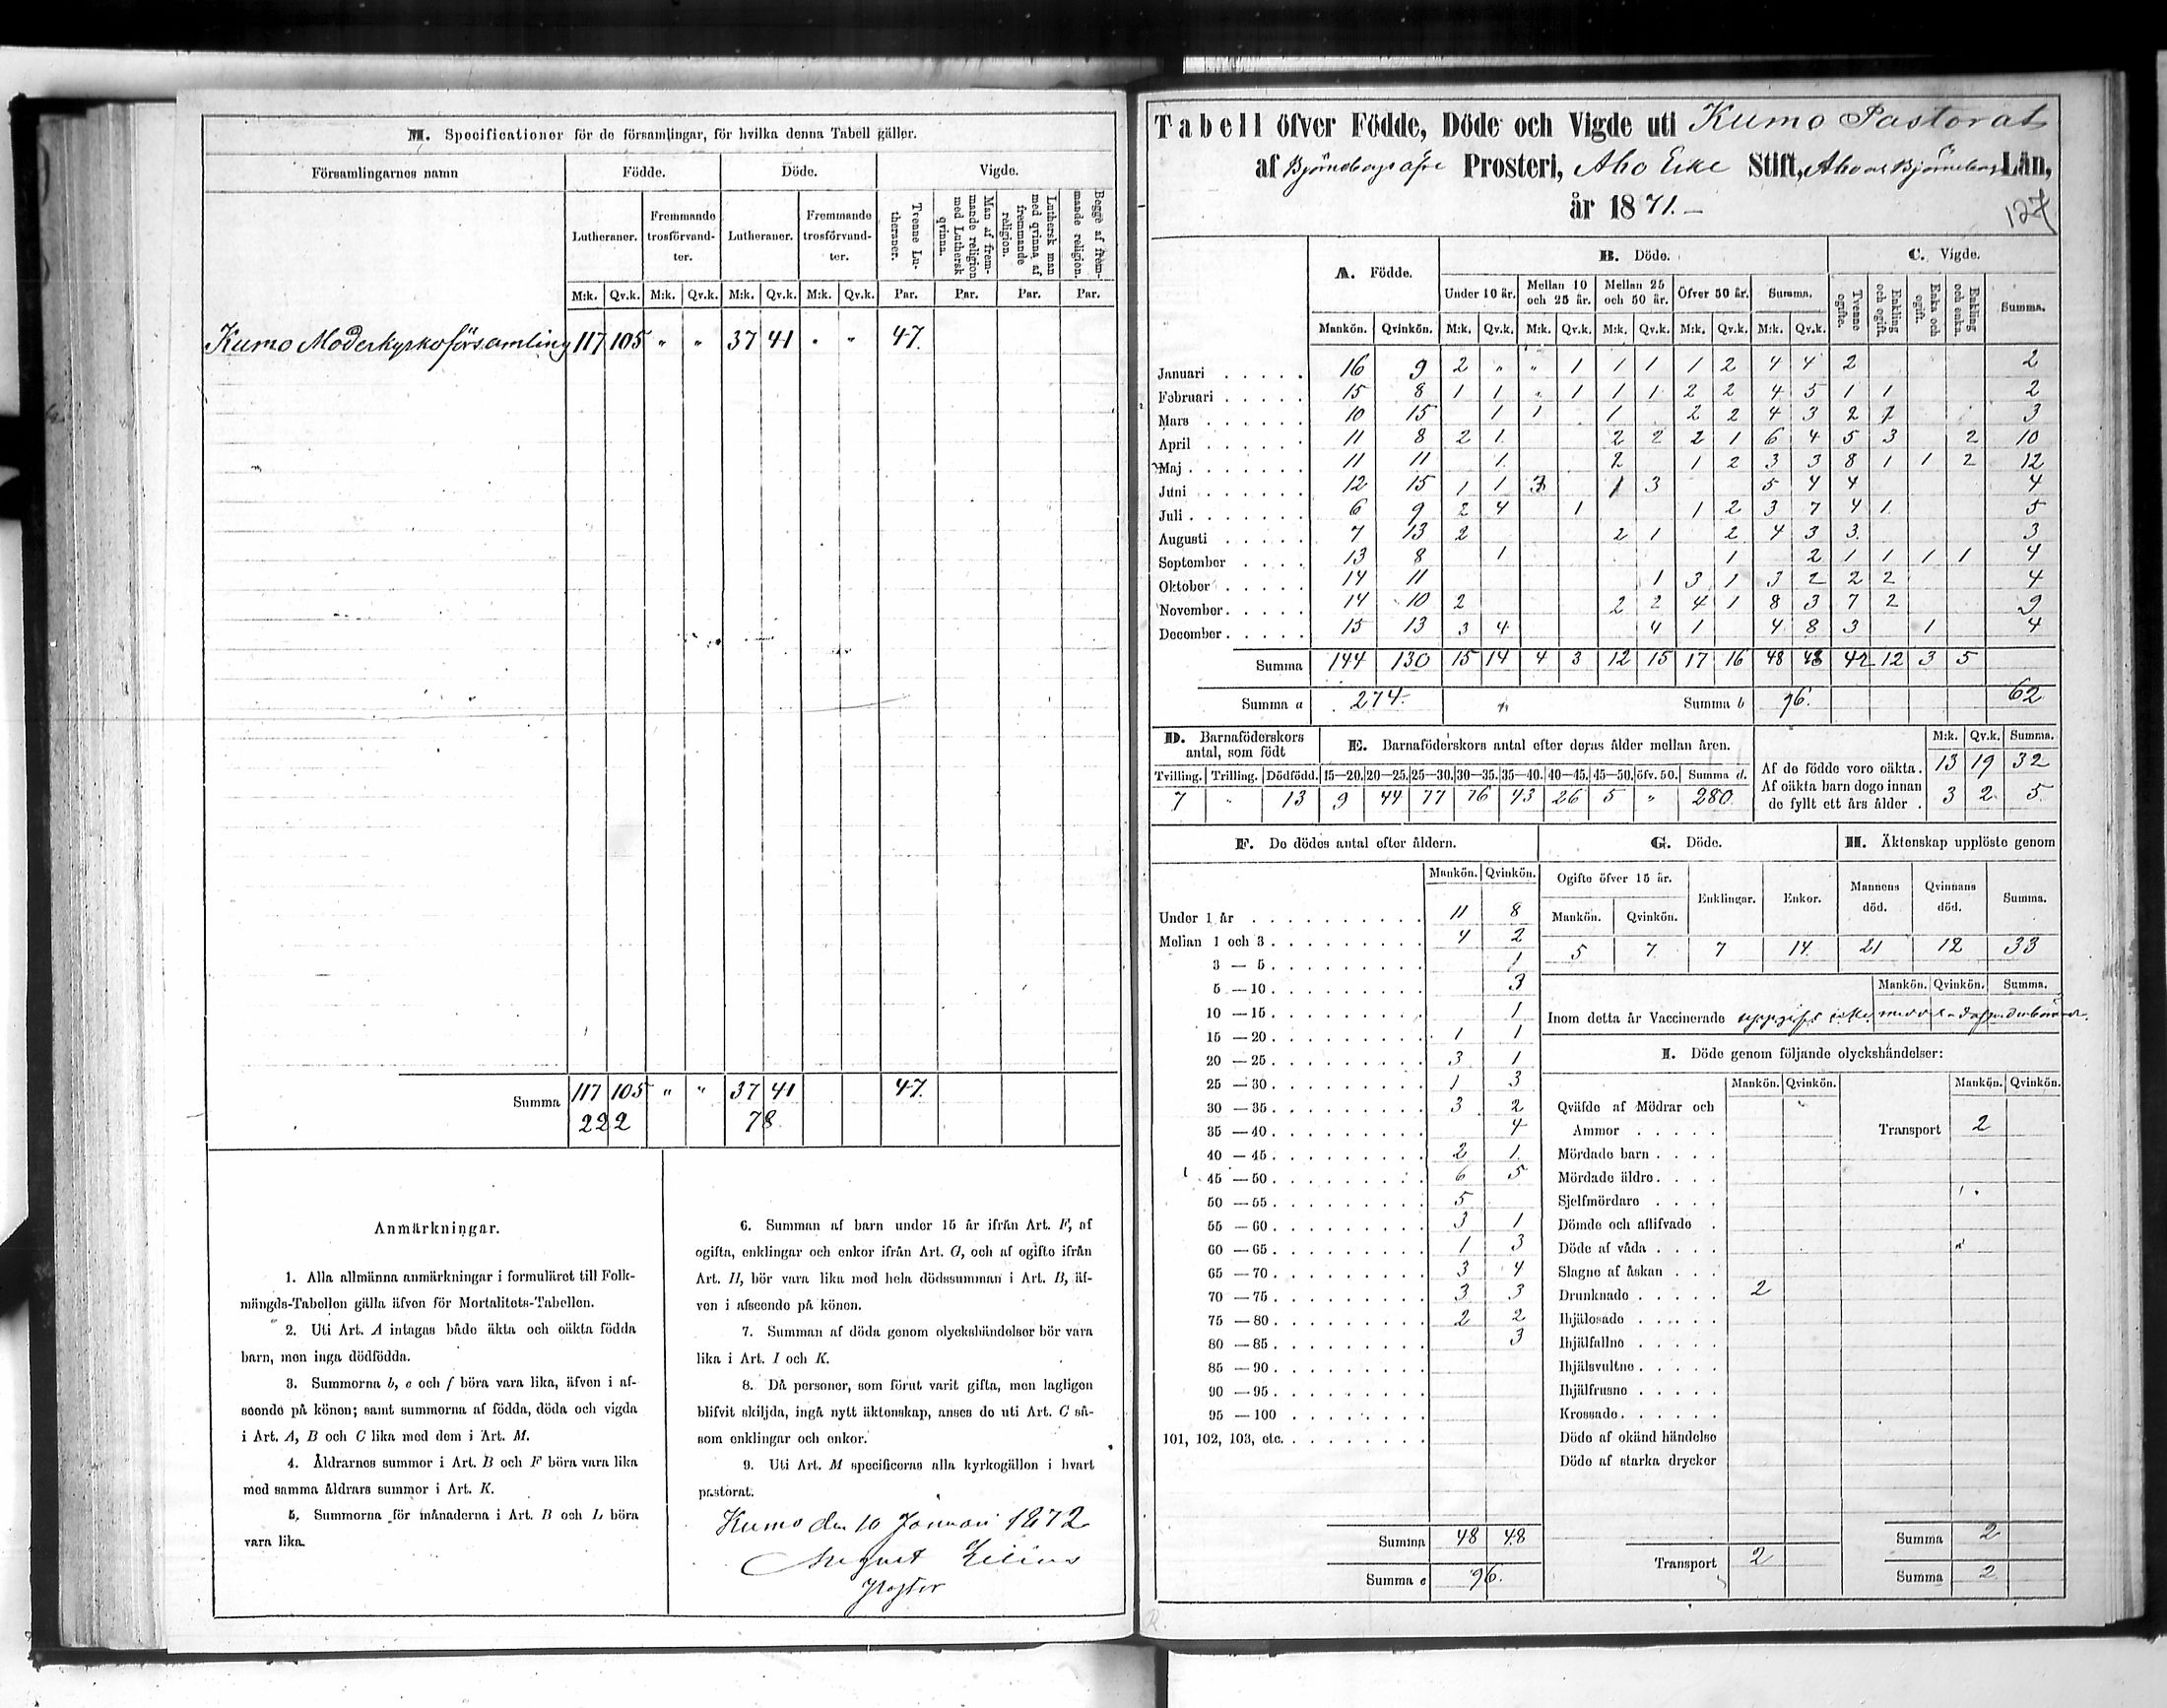 M. Specificationer för de församlingar, för hvilka denna Tabell gäller.
Församlingarnes namn Födde. Döde. Vigde.
Lutheraner. Fremmande trosförvandter. Lutheraner. Fremmande trosförvandter. Tvenne Lutheraner. Man af fremmande religion med Luthersk qvinna. Luthersk man med qvinna af fremmande religion. Begge af fremmande religion.
M:k. Qv.k. M:k. Qv.k. M:k. Qv.k. M:k. Qv.k. Par. Par. Par. Par.
Kumo Moderkyrkoförsamling 117 105 " " 37 41 " " 47.
Summa 117 105 " " 37 41 47.
222 78
Anmärkningar.
1. Alla allmänna anmärkningar i formuläret till Folk-
mängds-Tabellen gälla äfven för Mortalitets-Tabellen.
2. Uti Art. A intagas både äkta och oäkta födda
barn, men inga dödfödda.
3. Summorna b, e och f böra vara lika, äfven i af-
seende på könen; samt summorna af födda, döda och vigda
i Art. A, B och C lika med dem i Art. M.
4. Åldrarnes summor i Art. B och F böra vara lika
med samma åldrars summor i Art. K.
5. Summorna för månaderna i Art. B och L böra
vara lika.
6. Summan af barn under 15 år ifrån Art. F, af
ogifta, enklingar och enkor ifrån Art. G, och af ogifte ifrån
Art. H, bör vara lika med hela dödssumman i Art. B, äf-
ven i afseende på könen.
7. Summan af döda genom olyckshändelser bör vara
lika i Art. I och K.
8. Då personer, som förut varit gifta, men lagligen
blifvit skiljda, ingå nytt äktenskap, anses de uti Art. C så-
som enklingar och enkor.
9. Uti Art. M specificeras alla kyrkogällen i hvart
pastorat.
Kumo den 10 Januari 1872
August
Pastor
Tabell öfver Födde, Döde och Vigde uti Kumo Pastorat
af Björneborgs Prosteri, Åbo Erke Stift, Åbo och Björneborgs Län,
år 1871.
127
A. Födde. B. Döde. C. Vigde.
Under 10 år. Mellan 10 och 25 år. Mellan 25 och 50 år. Öfver 50 år. Summa. Tvenne ogifte. Enkling och ogift. Enka och ogift. Enkling och enka. Summa.
Mankön. Qvinkön. M:k. Qv.k. M:k. Qv.k. M:k. Qv.k. M:k. Qv.k. M:k. Qv.k.
Januari 16 9 2 " " 1 1 1 1 2 4 4 2 2
Februari 15 8 1 1 " 1 1 1 2 2 4 5 1 1 2
Mars 10 15 1 1 1 2 2 4 3 2 1 3
April 11 8 2 1 2 2 2 1 6 4 5 3 2 10
Maj 11 11 1 2 1 2 3 3 8 1 1 2 12
Juni 12 15 1 1 3 1 3 5 4 4 4
Juli 6 9 2 4 1 1 2 3 7 4 1 5
Augusti 7 13 2 2 1 2 4 3 3 3
September 13 8 1 1 2 1 1 1 1 4
Oktober 14 11 1 3 1 3 2 2 2 4
November 14 10 2 2 2 4 1 8 3 7 2 9
December 15 13 3 4 4 1 4 8 3 1 4
Summa 144 130 15 14 4 3 12 15 17 16 48 48 42 12 3 5
Summa a 274. Summa b 96. 62
D. Barnaföderskors antal, som födt
E. Barnaföderskors antal efter deras ålder mellan åren.
Tvilling. Trilling. Dödfödd. 15—20. 20—25. 25—30. 30—35. 35—40. 40—45. 45—50. öfv. 50. Summa d.
7 " 13 9 44 77 76 43 26 5 " 280
M:k. Qv.k. Summa.
Af de födde voro oäkta. 13 19 32
Af oäkta barn dogo innan de fyllt ett års ålder. 3 2 5
F. De dödes antal efter åldern.
Mankön. Qvinkön.
Under 1 år 11 8
Mellan 1 och 3 4 2
3 — 5 1
5 — 10 3
10 — 15 1
15 — 20 1 1
20 — 25 3 1
25 — 30 1 3
30 — 35 3 2
35 — 40 4
40 — 45 2 1
45 — 50 6 5
50 — 55 5
55 — 60 3 1
60 — 65 1 3
65 — 70 3 4
70 — 75 3 3
75 — 80 2 2
80 — 85 3
85 — 90
90 — 95
95 — 100
101, 102, 103, etc.
Summa 48 48
Summa e 96.
G. Döde.
Ogifte öfver 15 år. Enklingar. Enkor.
Mankön. Qvinkön.
5 7 7 14
H. Äktenskap upplöste genom
Mannens död. Qvinnans död. Summa.
21 12 33
Mankön. Qvinkön. Summa.
Inom detta år Vaccinerade uppgift icke
I. Döde genom följande olyckshändelser:
Mankön. Qvinkön. Mankön. Qvinkön.
Qväfde af Mödrar och
Ammor Transport 2
Mördade barn
Mördade äldre
Sjelfmördare
Dömde och aflifvade
Döde af våda
Slagne af åskan
Drunknade 2
Ihjälosade
Ihjälfallne
Ihjälsvultne
Ihjälfrusne
Krossade
Döde af okänd händelse
Döde af starka drycker
Summa 2
Transport 2 Summa 2